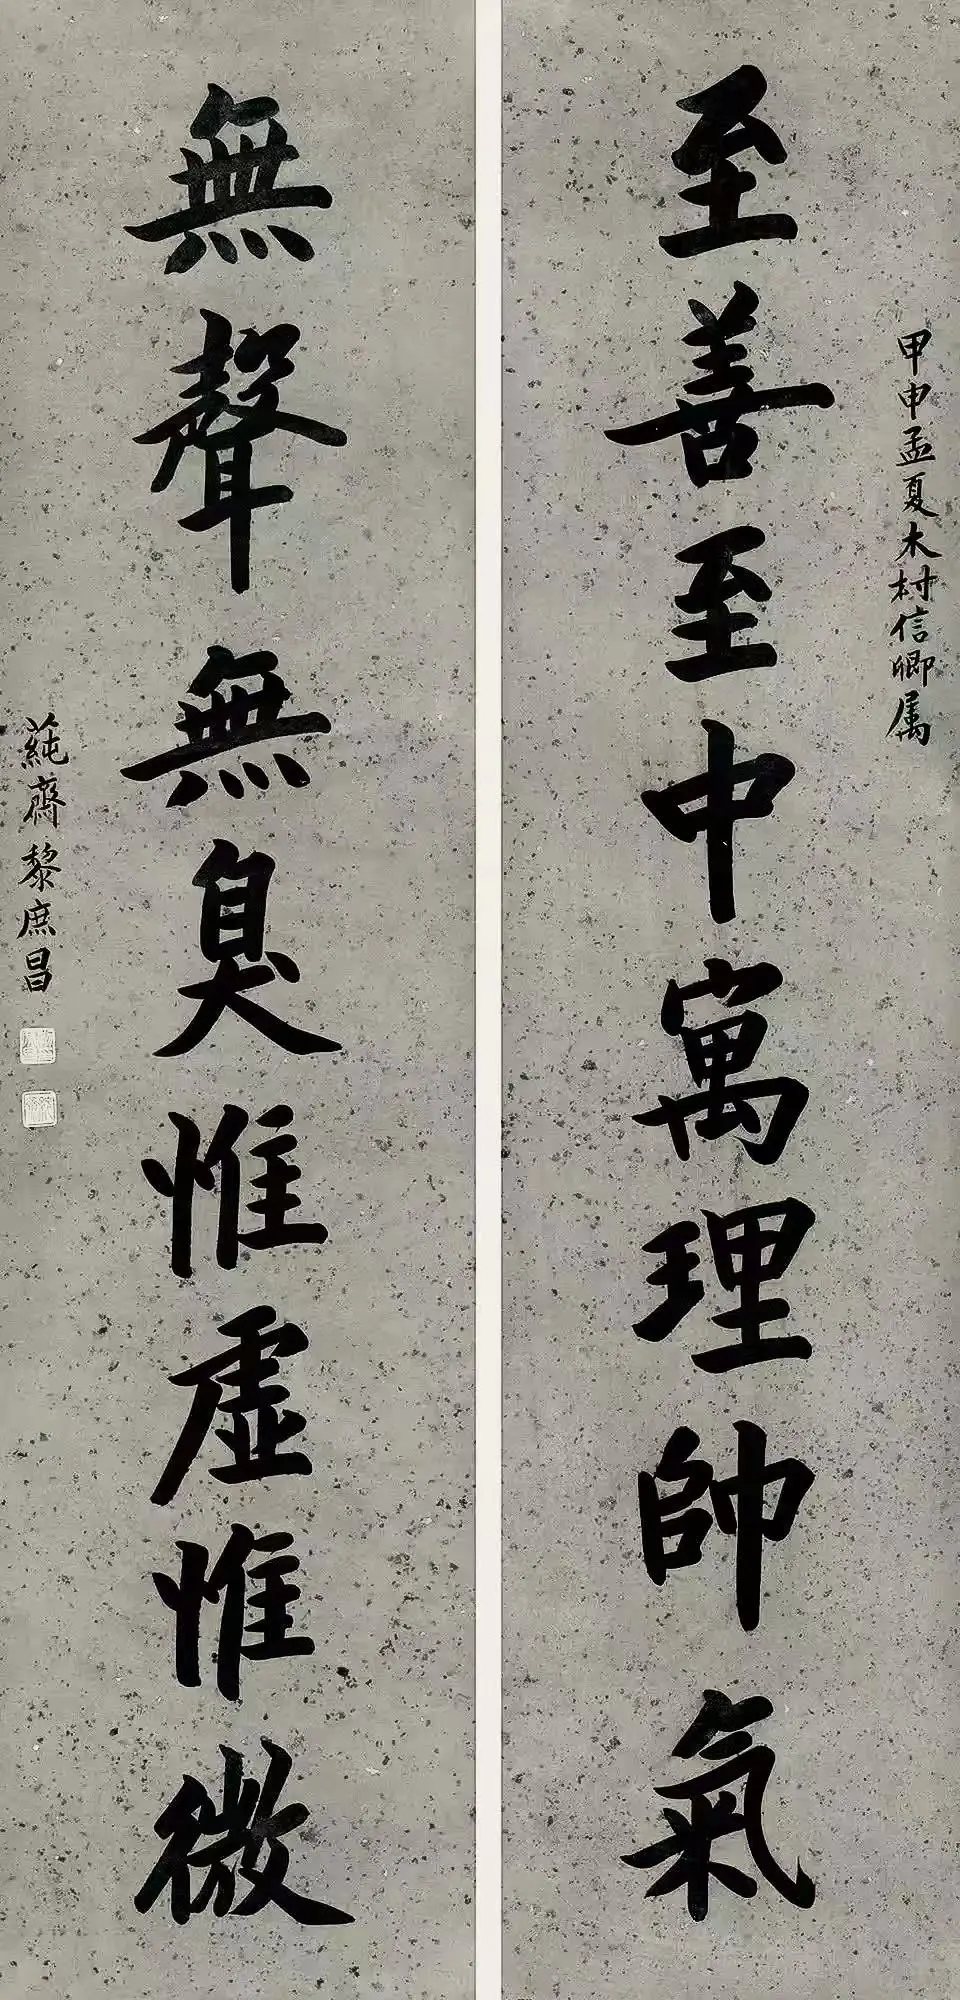 甲申孟夏木村信卿属
至善至中寓理帥氣
無聲無臭惟虛惟微
蒓齋黎庶昌